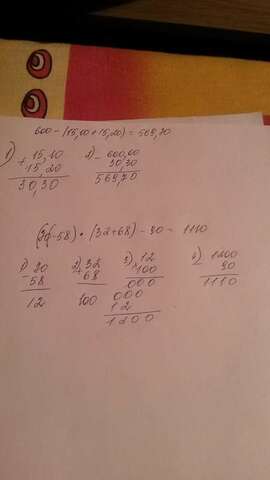 600 - (15,10 + 15,20) = 569,70
1) + 15,10 2) - 600,00
15 20 30,30
30,30 569,70
(70-58) * (32+68) - 90 = 1110
1) - 70 2) + 32 3) × 12 4) - 1200
58 68 100 90
12 100 000 1110
000
12
1200